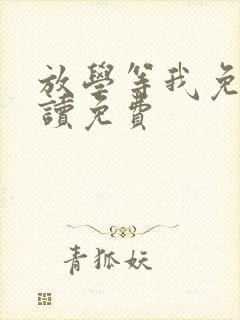 放學等我免
讀免費
青狐妖